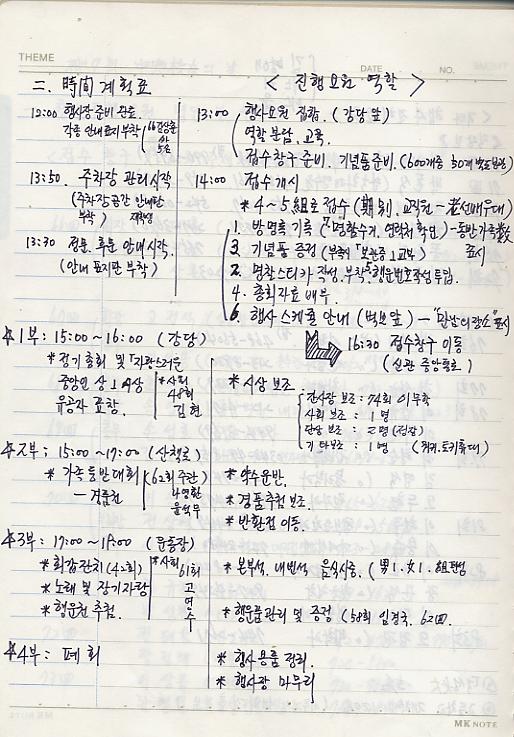 THEME
DATE
NO.
二. 時間 계획표
< 진행요원 역할 >
12:00 행사장 준비 완료
각종 안내표지 부착
13:50 주차장 관리시작
(주차장공간 안내판
부착)
13:30 정문. 후문 안내시작.
(안내 표지판 부착)
13:00 행사요원 집합. (강당 앞)
역할 분담. 교육.
접수창구 준비. 기념품준비.
14:00 접수 개시
* 4~5組로 접수 (期別. 교직원 - 老선배우대)
1. 방명록 기록 (명함수거. 연락처 확인) - 동반가족数
표시
3. 기념품 증정
2. 명찰스티카 작성. 부착. 행운번호작성 투입.
4. 총회자료 배부.
6. 행사 스케줄 안내 (벽보 앞) - "만남의 장소" 표시
16:30 접수창구 이동
(신관 중앙통로)
*1부: 15:00~16:00 (강당)
* 정기총회 및 「자랑스러운
중앙인 상」 시상
유공자 표창.
*사회
48회
김 현
* 시상 보조.
전시장 보조: 74회 이무학
사회 보조: 1명
단상 보조: 2명 (정장)
기타보조: 1명
*2부: 15:00~17:00 (산책로)
* 가족등반대회
(62회 주관)
* 약수운반.
* 경품추첨 보조.
* 반환점 이동.
*3부: 17:00~18:00 (운동장)
* 회갑잔치 (42회)
* 노래 및 장기자랑
* 행운권 추첨.
*사회
61회
고
연
수
* 본부석. 내빈석 음식시중. (男1. 女1. 組편성
* 행운품관리 및 증정 (58회 임경국. 62回
*4부: 폐회
* 행사용품 정리.
* 행사장 마무리
MK NOTE